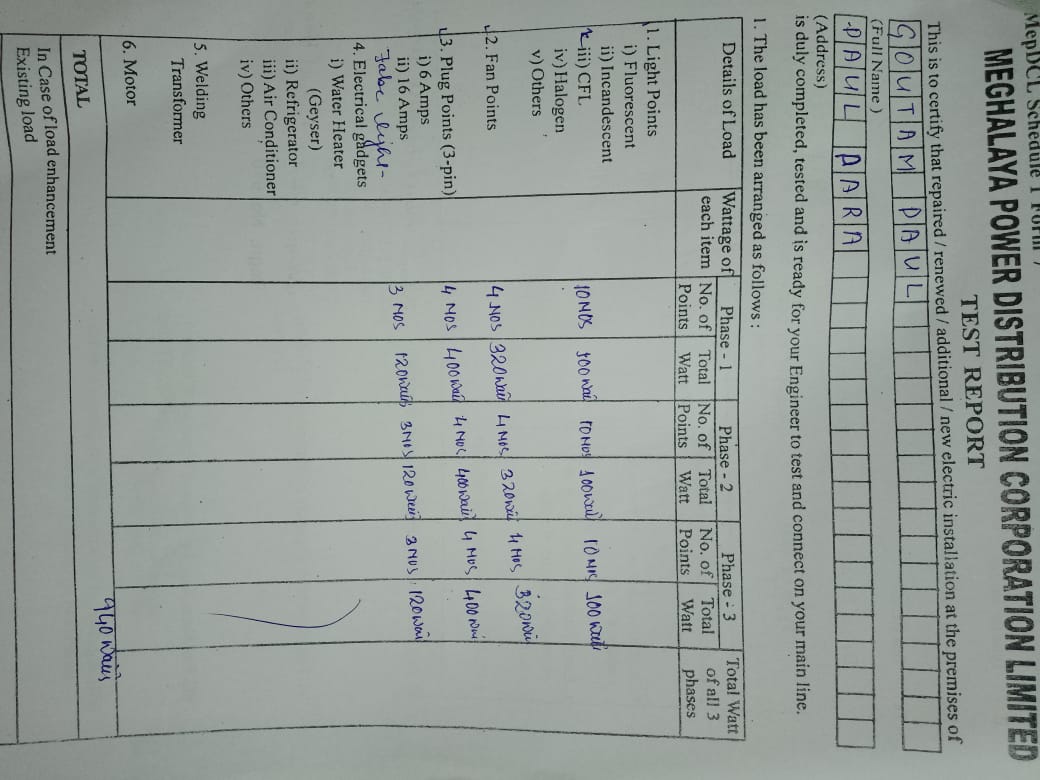 MepDCL Schedule 1 Form 7
MEGHALAYA POWER DISTRIBUTION CORPORATION LIMITED
TEST REPORT
This is to certify that repaired / renewed / additional / new electric installation at the premises of
GOUTAM PAUL
(Full Name)
PAUL PARA
(Address)
is duly completed, tested and is ready for your Engineer to test and connect on your main line.
1. The load has been arranged as follows :
Details of Load Wattage of each item Phase - 1 Phase - 2 Phase - 3 Total Watt of all 3 phases
No. of Points Total Watt No. of Points Total Watt No. of Points Total Watt
1. Light Points
i) Fluorescent
ii) Incandescent
iii) CFL 10 NOS 100 watt 10 NOS 100 watt 10 NOS 100 watt
iv) Halogen
v) Others
2. Fan Points 4 NOS 320 watt 4 NOS 320 watt 4 NOS 320 watt
3. Plug Points (3-pin) 4 NOS 400 watt 4 NOS 400 watt 4 NOS 400 watt
i) 6 Amps
ii) 16 Amps
Tube light- 3 NOS 120 watts 3 NOS 120 watt 3 NOS 120 watt
4. Electrical gadgets
i) Water Heater
(Geyser)
ii) Refrigerator
iii) Air Conditioner
iv) Others
5. Welding
Transformer
6. Motor
940 watts
TOTAL
In Case of load enhancement
Existing load